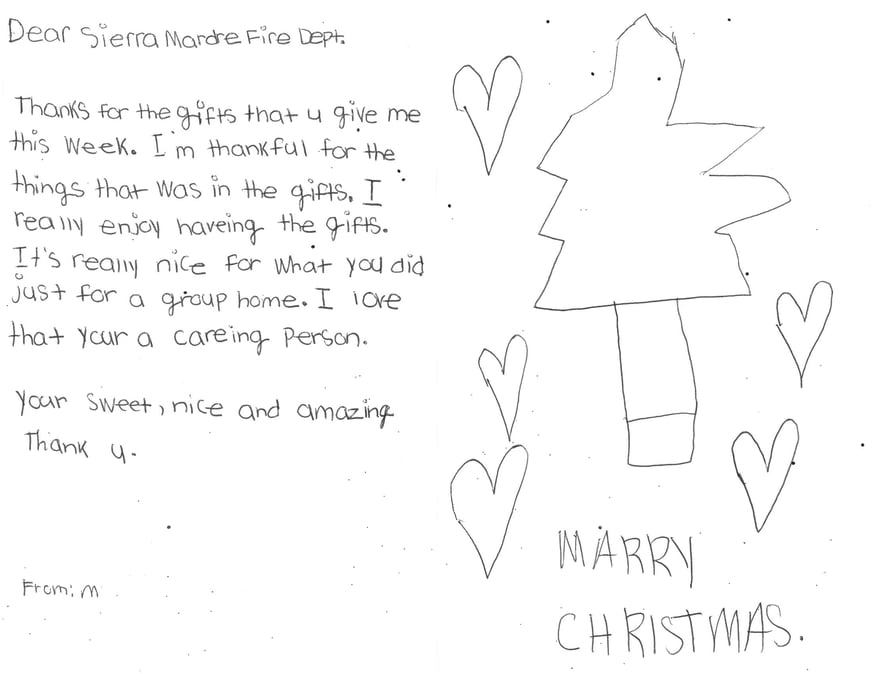 Dear Sierra Mardre Fire Dept.
Thanks for the gifts that u give me
this week. I'm thankful for the
things that was in the gifts. I
really enjoy haveing the gifts.
It's really nice for what you did
just for a group home. I love
that your a careing person.
Your sweet, nice and amazing
Thank u.
From: M
MARRY
CHRISTMAS.